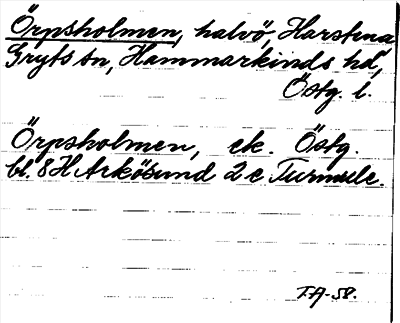 Örpsholmen, halvö, Harstena
Gryts sn, Hammarkinds hd,
Östg. l.
Örpsholmen, ek. Östg.
bl. 8 H Arkösund 2 c Turmulc.
T.A-58.